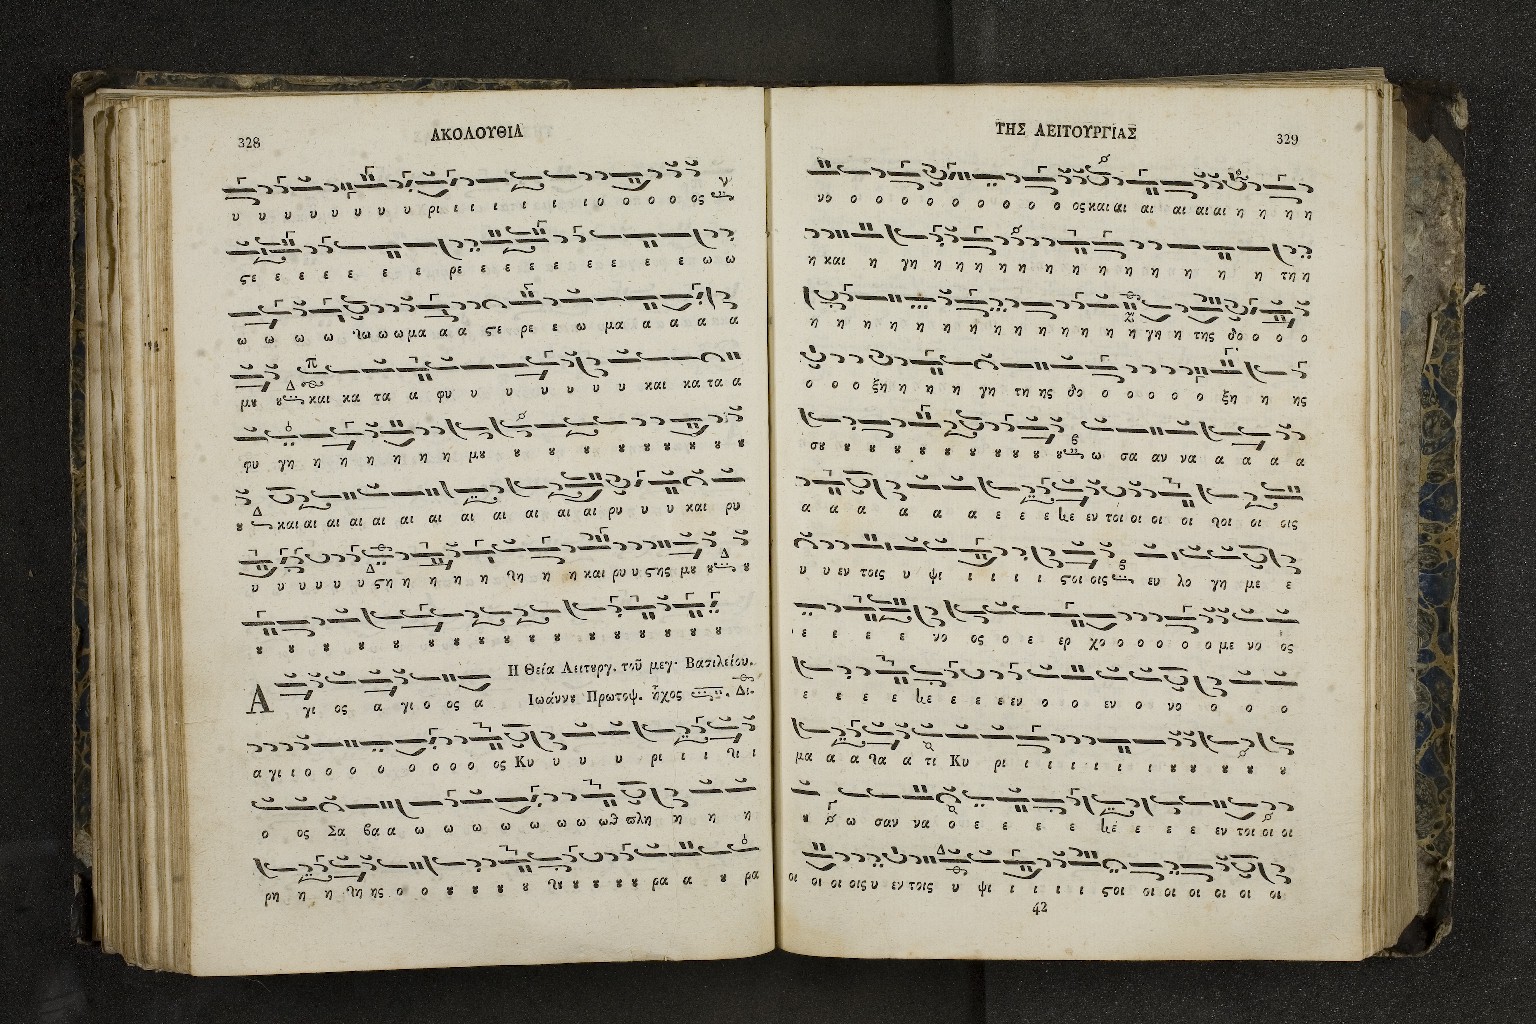 328
ΑΚΟΛΟΥΘΙΑ
υ υ υ υ υ υ υ υ ρι ι ι ι ι ι ιο ο ο ο ος
ϛε ε ε ε ε ε ε ρε ε ε ε ε ε ε ε ε ω ω
ω ω ω ω ω ω ω μα α α ϛε ρε ε ω μα α α α α
μȣ ȣ και κα τα α φυ υ υ υ υ υ υ και κα τα α
φυ γη η η η η η η μȣ ȣ ȣ ȣ ȣ ȣ ȣ ȣ ȣ
ȣ και αι αι αι αι αι αι αι αι αι αι αι ρυ υ υ και ρυ
υ υ υ υ υ υ ϛη η η η η η η η και ρυ υ ϛης μȣ ȣ ȣ
ȣ ȣ ȣ ȣ ȣ ȣ ȣ ȣ ȣ ȣ ȣ ȣ ȣ ȣ
Η Θεία Λειτȣργ. τοῦ μεγ. Βασιλείου.
Ιωάννȣ Πρωτοψ. ἦχος Δι.
Α γι ος α γι ο ος α
α γι ι ο ο ο ο ο ο ο ο ος Κυ υ υ υ ρι ι ι ι
ο ος Σα βα α ω ω ω ω ω ω ω ωθ πλη η η η
ρη η η η ης ο ο ȣ ȣ ȣ ȣ ȣ ȣ ȣ ȣ ρα α ȣ ρα
ΤΗΣ ΛΕΙΤΟΥΡΓΙΑΣ
329
νο ο ο ο ο ο ο ο ο ο ος και αι αι αι αι αι η η η η
η και η γη η η η η η η η η η η η η η τη η
η η η η η η η η η η η η η η η γη η της δο ο ο ο
ο ο ο ξη η η η γη τη ης δο ο ο ο ο ο ξη η ης
σȣ ȣ ȣ ȣ ȣ ȣ ȣ ȣ ȣ ȣ ȣ ω σα αν να α α α α
α α α α α α ε ε ε εν τοι οι οι οι οι οι οις
υ υ εν τοις υ ψι ι ι ι ι ϛοι οις ευ λο γη με ε
ε ε ε ε νο ος ο ε ερ χο ο ο ο ο ο με νο ος
ε ε ε ε ε ε ε εν ο ο εν ο νο ο ο ο
μα α α α τι Κυ ρι ι ι ι ι ι ȣ ȣ ȣ ȣ ȣ
ȣ ω σαν να ο ε ε ε ε ε ε ε ε εν τοι οι οι
οι οι οι οις υ εν τοις υ ψι ι ι ι ι ϛοι οι οι οι οι οι οι
42